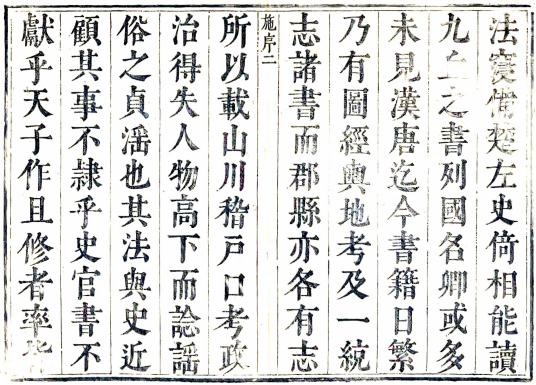 法寔備楚左史倚相能讀
九丘之書列國名卿或多
未見漢唐迄今書籍日繁
乃有圖經輿地考及一統
志諸書而郡縣亦各有志
施序二
所以載山川稽戸口考政
治得失人物高下而諗謡
俗之貞滛也其法與史近
顧其事不隷乎史官書不
獻乎天子作且修者率皆